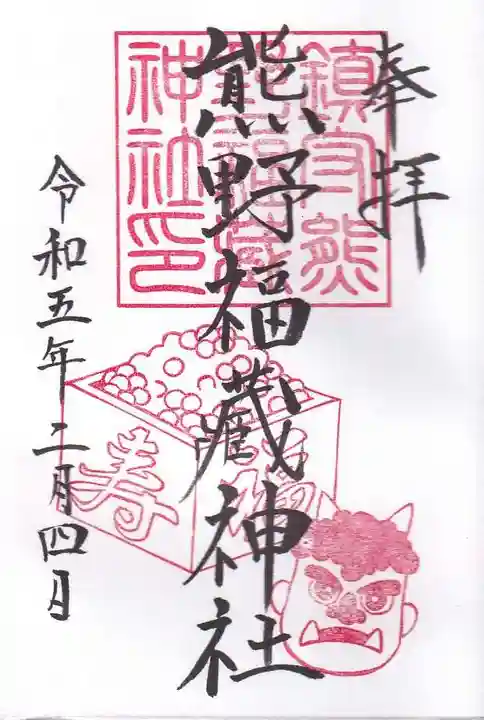 奉拝
熊野福蔵神社
令和五年二月四日
鎮守熊
野福蔵
神社印
寿
福